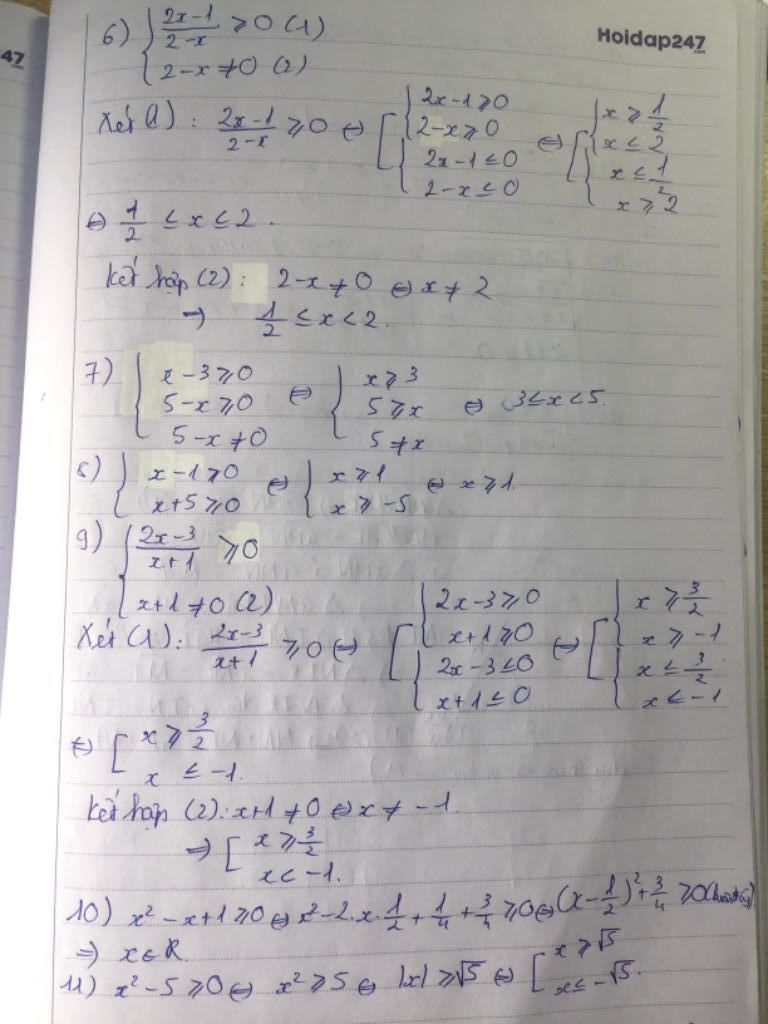 Hoidap247
47
6) { (2x-1)/(2-x) ⩾ 0 (1)
{ 2-x ≠ 0 (2)
Xét (1) : (2x-1)/(2-x) ⩾ 0 ⇔ [ { 2x-1 ⩾ 0 ; 2-x ⩾ 0 } { 2x-1 ≤ 0 ; 2-x ≤ 0 } ⇔ [ { x ⩾ 1/2 ; x ≤ 2 } { x ≤ 1/2 ; x ⩾ 2 }
⇔ 1/2 ≤ x ≤ 2.
Kết hợp (2) : 2-x ≠ 0 ⇔ x ≠ 2
⇒ 1/2 ≤ x < 2.
7) { x-3 ⩾ 0 ; 5-x ⩾ 0 ; 5-x ≠ 0 ⇔ { x ⩾ 3 ; 5 ⩾ x ; 5 ≠ x ⇔ 3 ≤ x < 5.
8) { x-1 ⩾ 0 ; x+5 ⩾ 0 ⇔ { x ⩾ 1 ; x ⩾ -5 ⇔ x ⩾ 1.
9) { (2x-3)/(x+1) ⩾ 0
{ x+1 ≠ 0 (2)
Xét (1) : (2x-3)/(x+1) ⩾ 0 ⇔ [ { 2x-3 ⩾ 0 ; x+1 ⩾ 0 } { 2x-3 ≤ 0 ; x+1 ≤ 0 } ⇔ [ { x ⩾ 3/2 ; x ⩾ -1 } { x ≤ 3/2 ; x ≤ -1 }
⇔ [ x ⩾ 3/2 ; x ≤ -1.
Kết hợp (2) : x+1 ≠ 0 ⇔ x ≠ -1.
⇒ [ x ⩾ 3/2 ; x < -1.
10) x² - x + 1 ⩾ 0 ⇔ x² - 2.x.1/2 + 1/4 + 3/4 ⩾ 0 ⇔ (x - 1/2)² + 3/4 ⩾ 0
⇒ x ∈ R.
11) x² - 5 ⩾ 0 ⇔ x² ⩾ 5 ⇔ |x| ⩾ √5 ⇔ [ x ⩾ √5 ; x ≤ -√5.